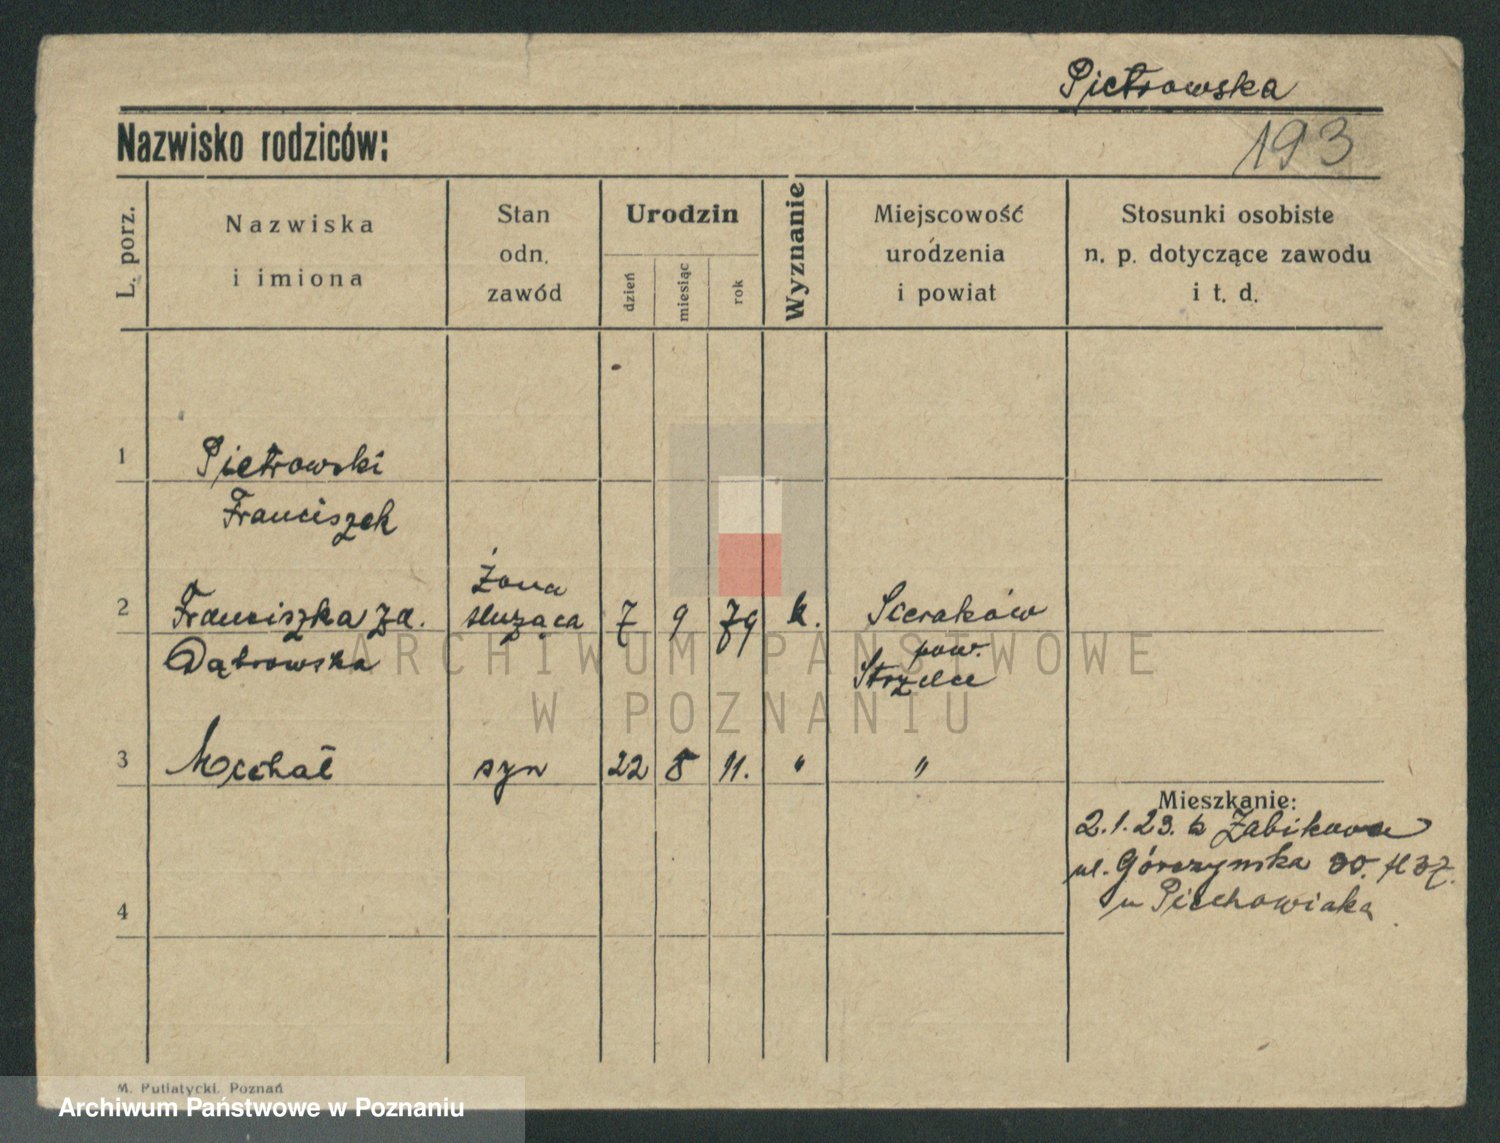 Pietrowska
Nazwisko rodziców:
193
L. porz.
Nazwiska
i imiona
Stan
odn.
zawód
Urodzin
dzień
miesiąc
rok
Wyznanie
Miejscowość
urodzenia
i powiat
Stosunki osobiste
n. p. dotyczące zawodu
i t. d.
1 Pietrowski
Franciszek
żona
2 Franciszka zd. służąca 7 9 79 k. Sieraków
Dąbrowska pow.
Strzelce
3 Michał syn 22 8 11. " "
Mieszkanie:
2.1.23. z Żabikowa
ul. Górczyńska 30.
u Piechowiaka
4
M. Putiatycki, Poznań
ARCHIWUM PAŃSTWOWE
W POZNANIU
Archiwum Państwowe w Poznaniu